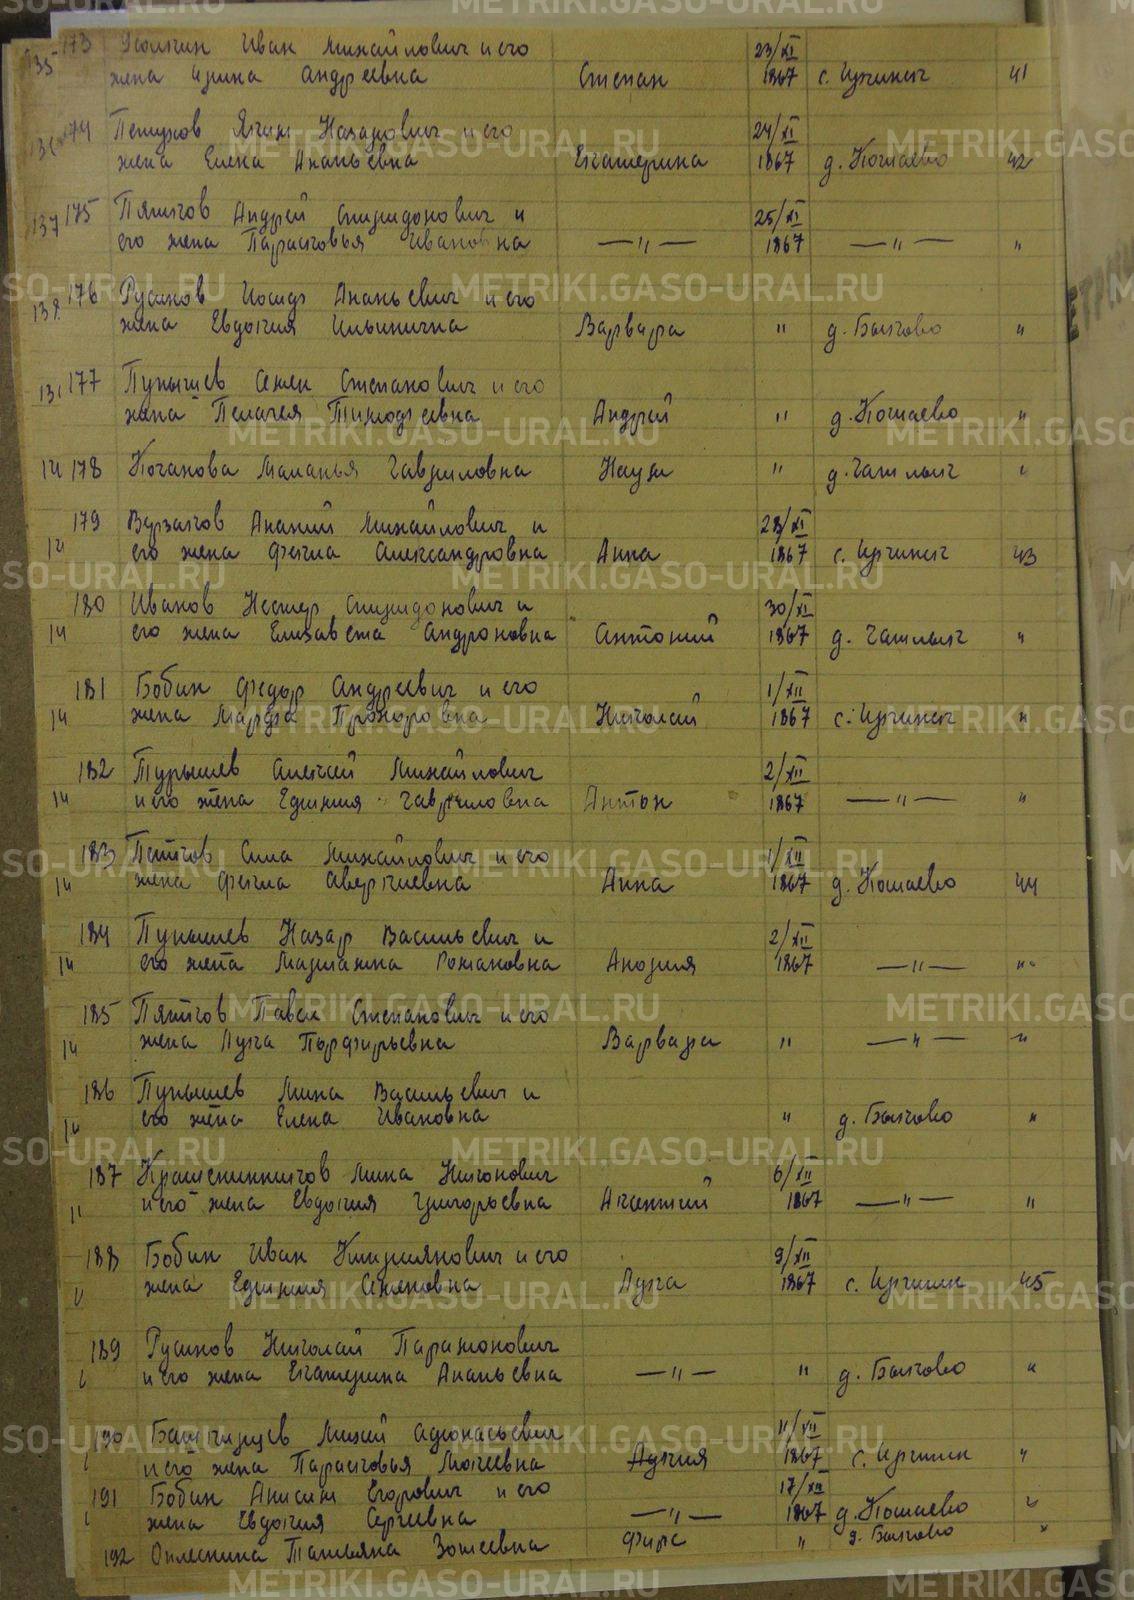 173 Усольчин Иван Михайлович и его 23/XI
135 жена Ирина Андреевна Степан 1867 с. Иргинск 41
174 Петухов Яким Назарович и его 24/XI
жена Елена Ананьевна Екатерина 1867 д. Кошаево 42
175 Пятков Андрей Спиридонович и 25/XI
137 его жена Парасковья Ивановна —"— 1867 —"— "
176 Русинов Иосиф Ананьевич и его
138 жена Евдокия Ильинична Варвара " д. Быково "
177 Пупышев Семен Степанович и его
жена Пелагея Тимофеевна Андрей " д. Кошаево "
14 178 Коганова Маланья Гавриловна Наум " д. Чатлык "
179 Верзаков Ананий Михайлович и 28/XI
14 его жена Фекла Александровна Анна 1867 с. Иргинск 43
180 Иванов Нестер Спиридонович и 30/XI
14 его жена Елизавета Андроновна Антоний 1867 д. Чатлык "
181 Бобин Федор Андреевич и его 1/XII
14 жена Марфа Прохоровна Николай 1867 с. Иргинск "
182 Турышев Алексей Михайлович 2/XII
14 и его жена Ефимия Гавриловна Антон 1867 —"— "
183 Пятков Сила Михайлович и его 1/XII
14 жена Фекла Аверкиевна Анна 1867 д. Кошаево 44
184 Пупышев Назар Васильевич и 2/XII
14 его жена Марианна Романовна Анфия 1867 —"— "
185 Пятков Павел Степанович и его
14 жена Лукия Порфирьевна Варвара " —"— "
186 Пупышев Мина Васильевич и
14 его жена Елена Ивановна " д. Быково "
187 Крашенинников Мина Никонович 6/XII
и его жена Евдокия Григорьевна Акентий 1867 —"— "
188 Бобин Иван Киприянович и его 9/XII
жена Ефимия Семеновна Лукия 1867 с. Иргинск 45
189 Русинов Николай Парамонович
и его жена Екатерина Ананьевна —"— " д. Быково "
190 Башкирцев Михей Афонасьевич 11/XII
и его жена Парасковья Мокеевна Лукия 1867 с. Иргинск "
191 Бобин Анисим Егорович и его 17/XII
жена Евдокия Сергеевна —"— 1867 д. Кошаево "
192 Оплеснина Татьяна Зотеевна Фирс " д. Быково "
METRIKI.GASO-URAL.RU